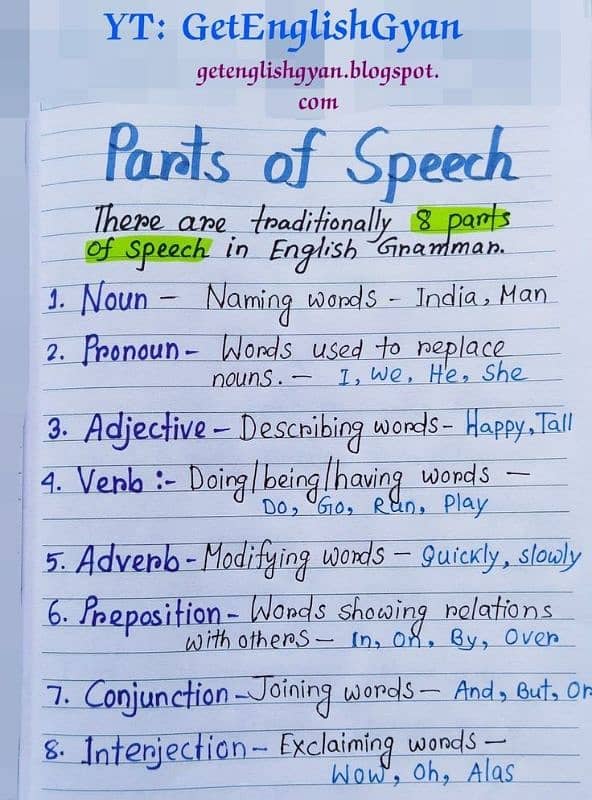 YT: GetEnglishGyan
getenglishgyan.blogspot.
com
Parts of Speech
There are traditionally 8 parts
of speech in English Grammar.
1. Noun – Naming words – India, Man
2. Pronoun – Words used to replace
nouns. – I, We, He, She
3. Adjective – Describing words – Happy, Tall
4. Verb :- Doing/being/having words –
Do, Go, Run, Play
5. Adverb – Modifying words – quickly, slowly
6. Preposition – Words showing relations
with others – In, On, By, Over
7. Conjunction – Joining words – And, But, Or
8. Interjection – Exclaiming words –
Wow, Oh, Alas